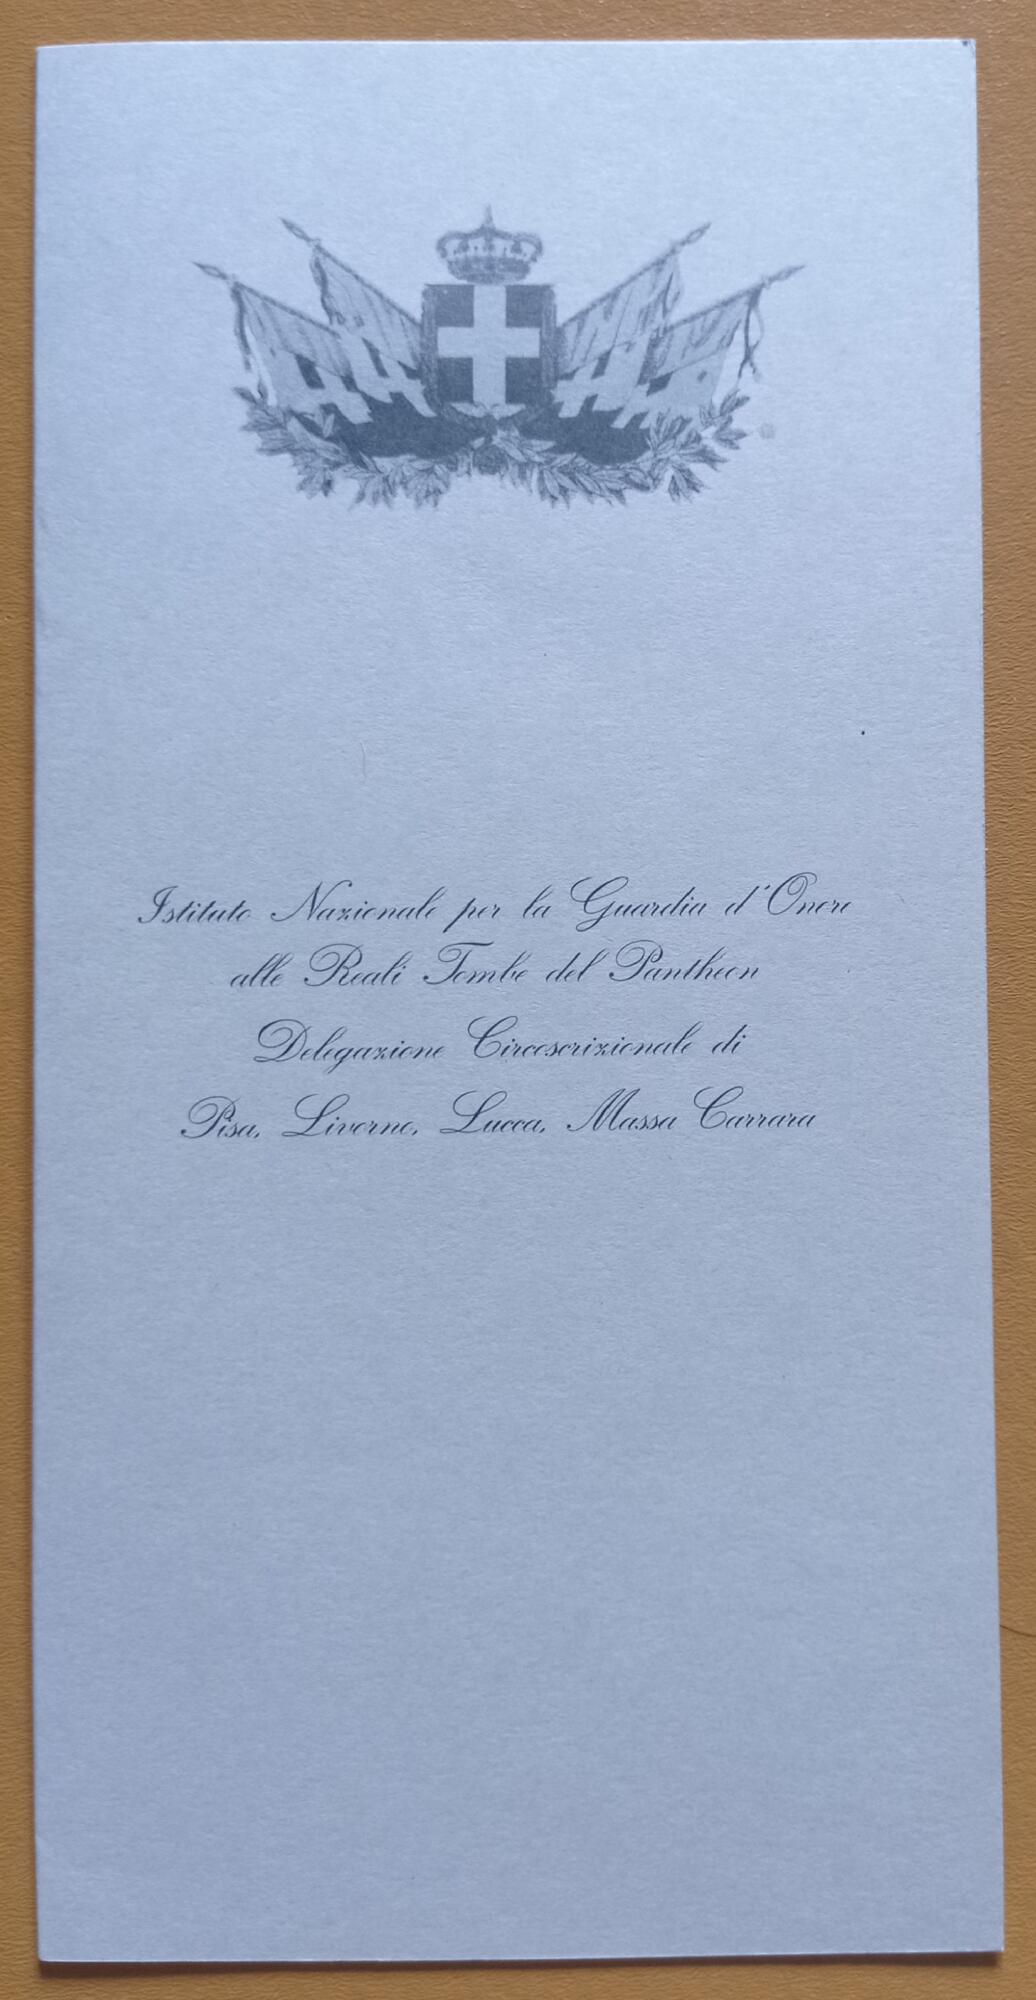 Istituto Nazionale per la Guardia d'Onore
alle Reali Tombe del Pantheon
Delegazione Circoscrizionale di
Pisa, Livorno, Lucca, Massa Carrara